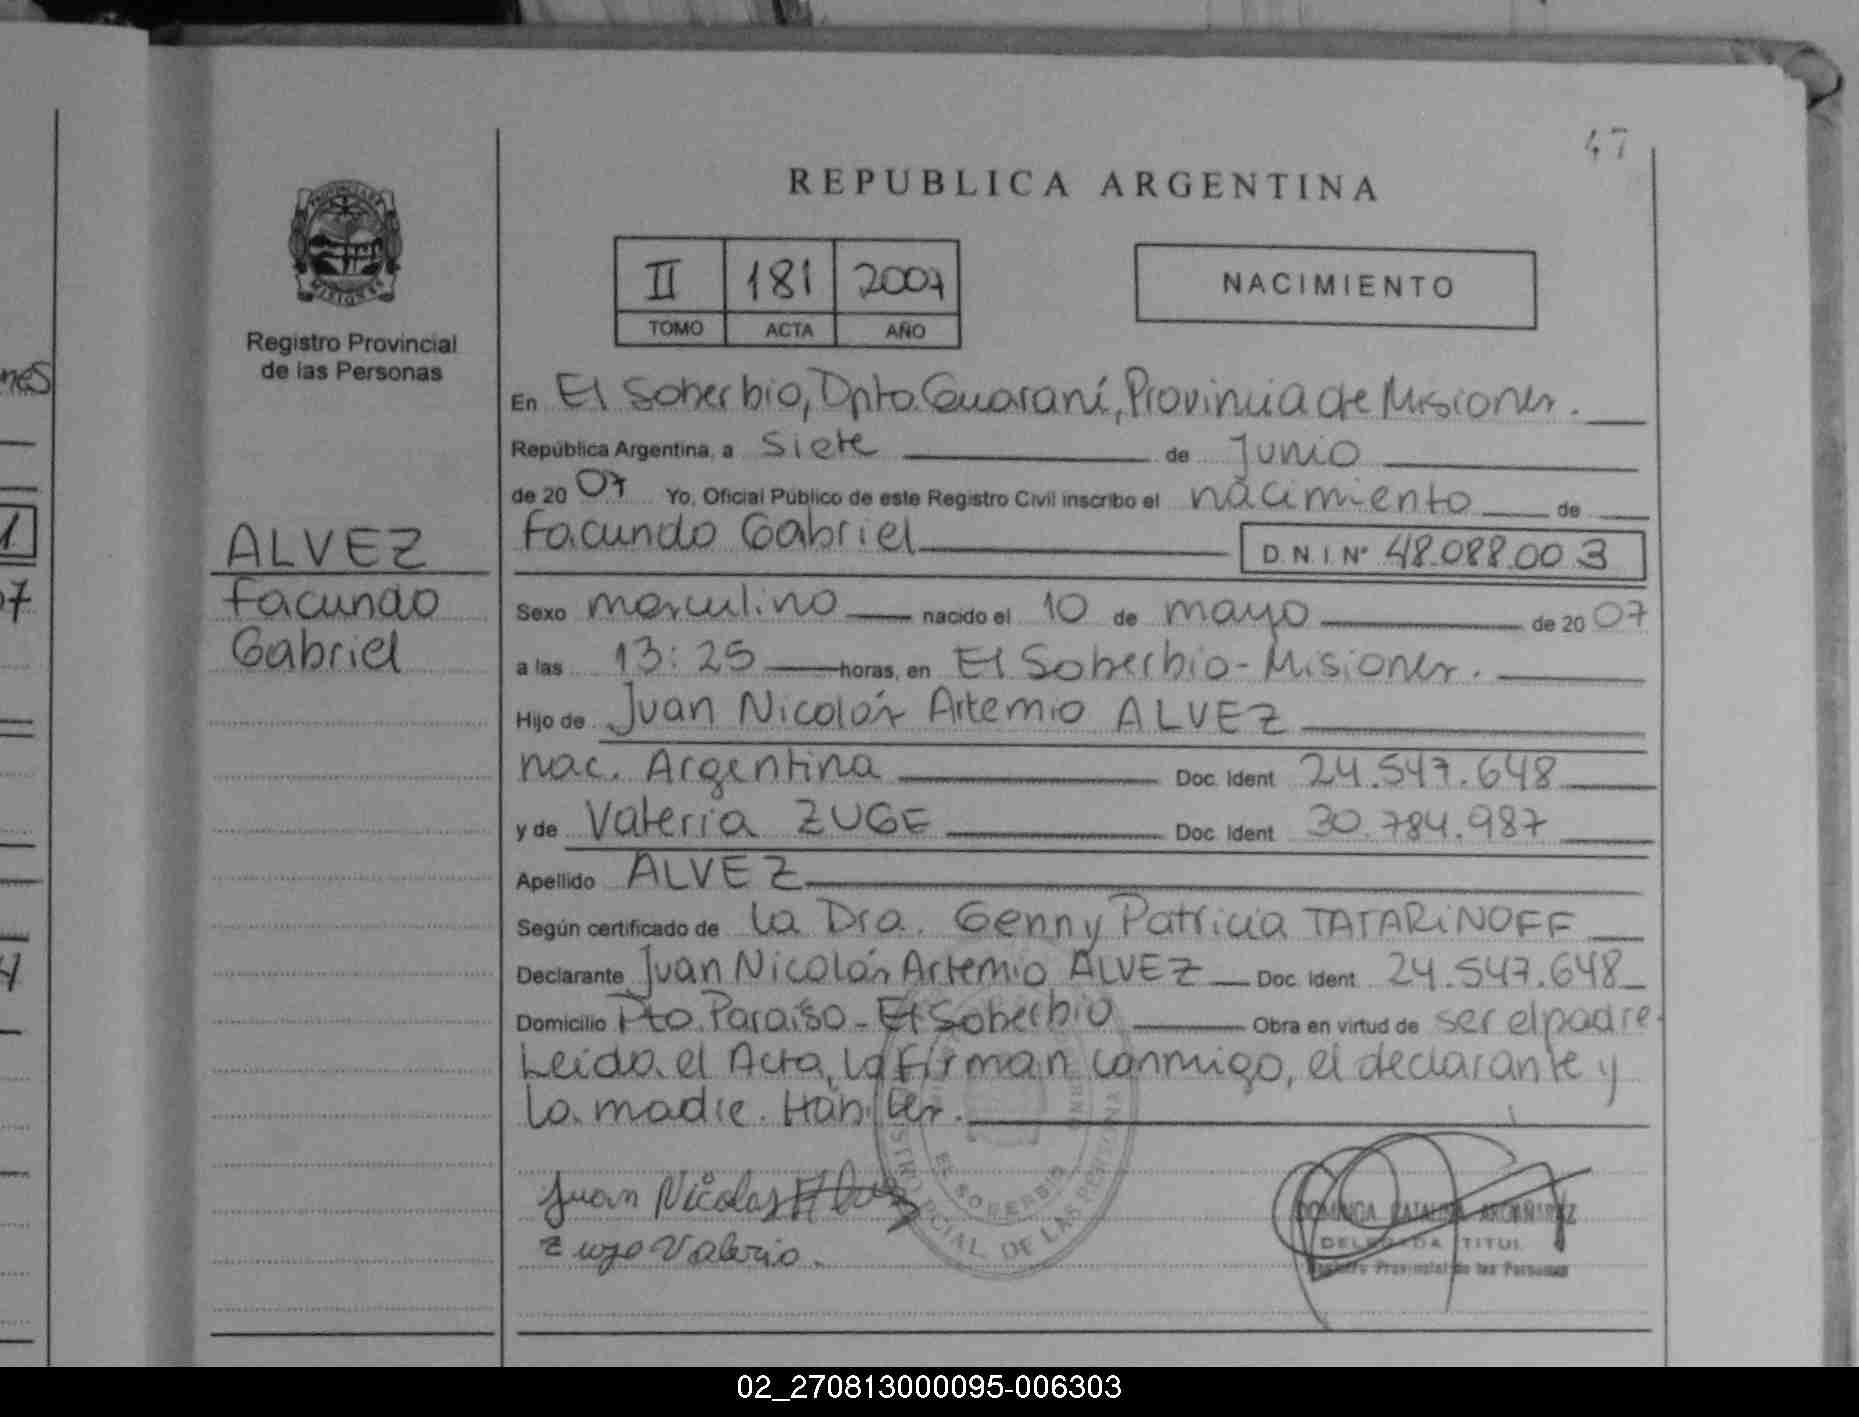 47
REPUBLICA ARGENTINA
PROVINCIA DE
MISIONES
Registro Provincial
de las Personas
II 181 2007
TOMO ACTA AÑO
NACIMIENTO
nes
En El Soberbio, Dpto. Guaraní, Provincia de Misiones.
República Argentina, a siete de Junio
de 2007 Yo, Oficial Público de este Registro Civil inscribo el nacimiento de
Facundo Gabriel D.N.I. Nº 48.088.003
ALVEZ
Facundo
Gabriel
Sexo masculino nacido el 10 de mayo de 2007
a las 13:25 horas, en El Soberbio - Misiones.
Hijo de Juan Nicolás Artemio ALVEZ
nac. Argentina Doc. Ident 24.547.648
y de Valeria ZUGE Doc. Ident 30.784.987
Apellido ALVEZ
Según certificado de la Dra. Genny Patricia TATARiNOFF
Declarante Juan Nicolás Artemio ALVEZ Doc. Ident. 24.547.648
Domicilio Pto. Paraíso - El Soberbio Obra en virtud de ser el padre.
Leída el Acta, la firman conmigo, el declarante y
la madre. Hábiles.
Juan Nicolas
Zuge Valeria.
EL SOBERBIO
DE LAS PERSONAS
DOMINGA CATALINA ARGAÑAREZ
DELEGADA TITUL
Registro Provincial de las Personas
02_270813000095-006303